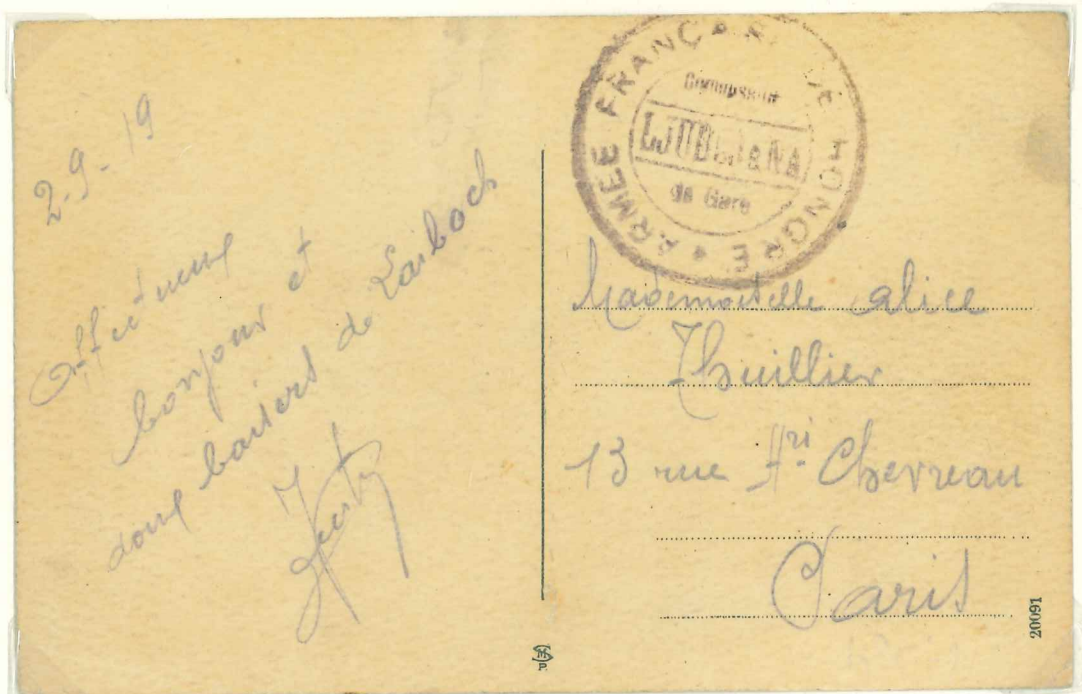 2-9-19
Affectueux
bonjour et
doux baisers de Laibach
ARMEE FRANÇAISE DE HONGRIE
Commission
LJUBLJANA
de Gare
Mademoiselle Alice
Thuillier
13 rue Hri Chevreau
Paris
20091